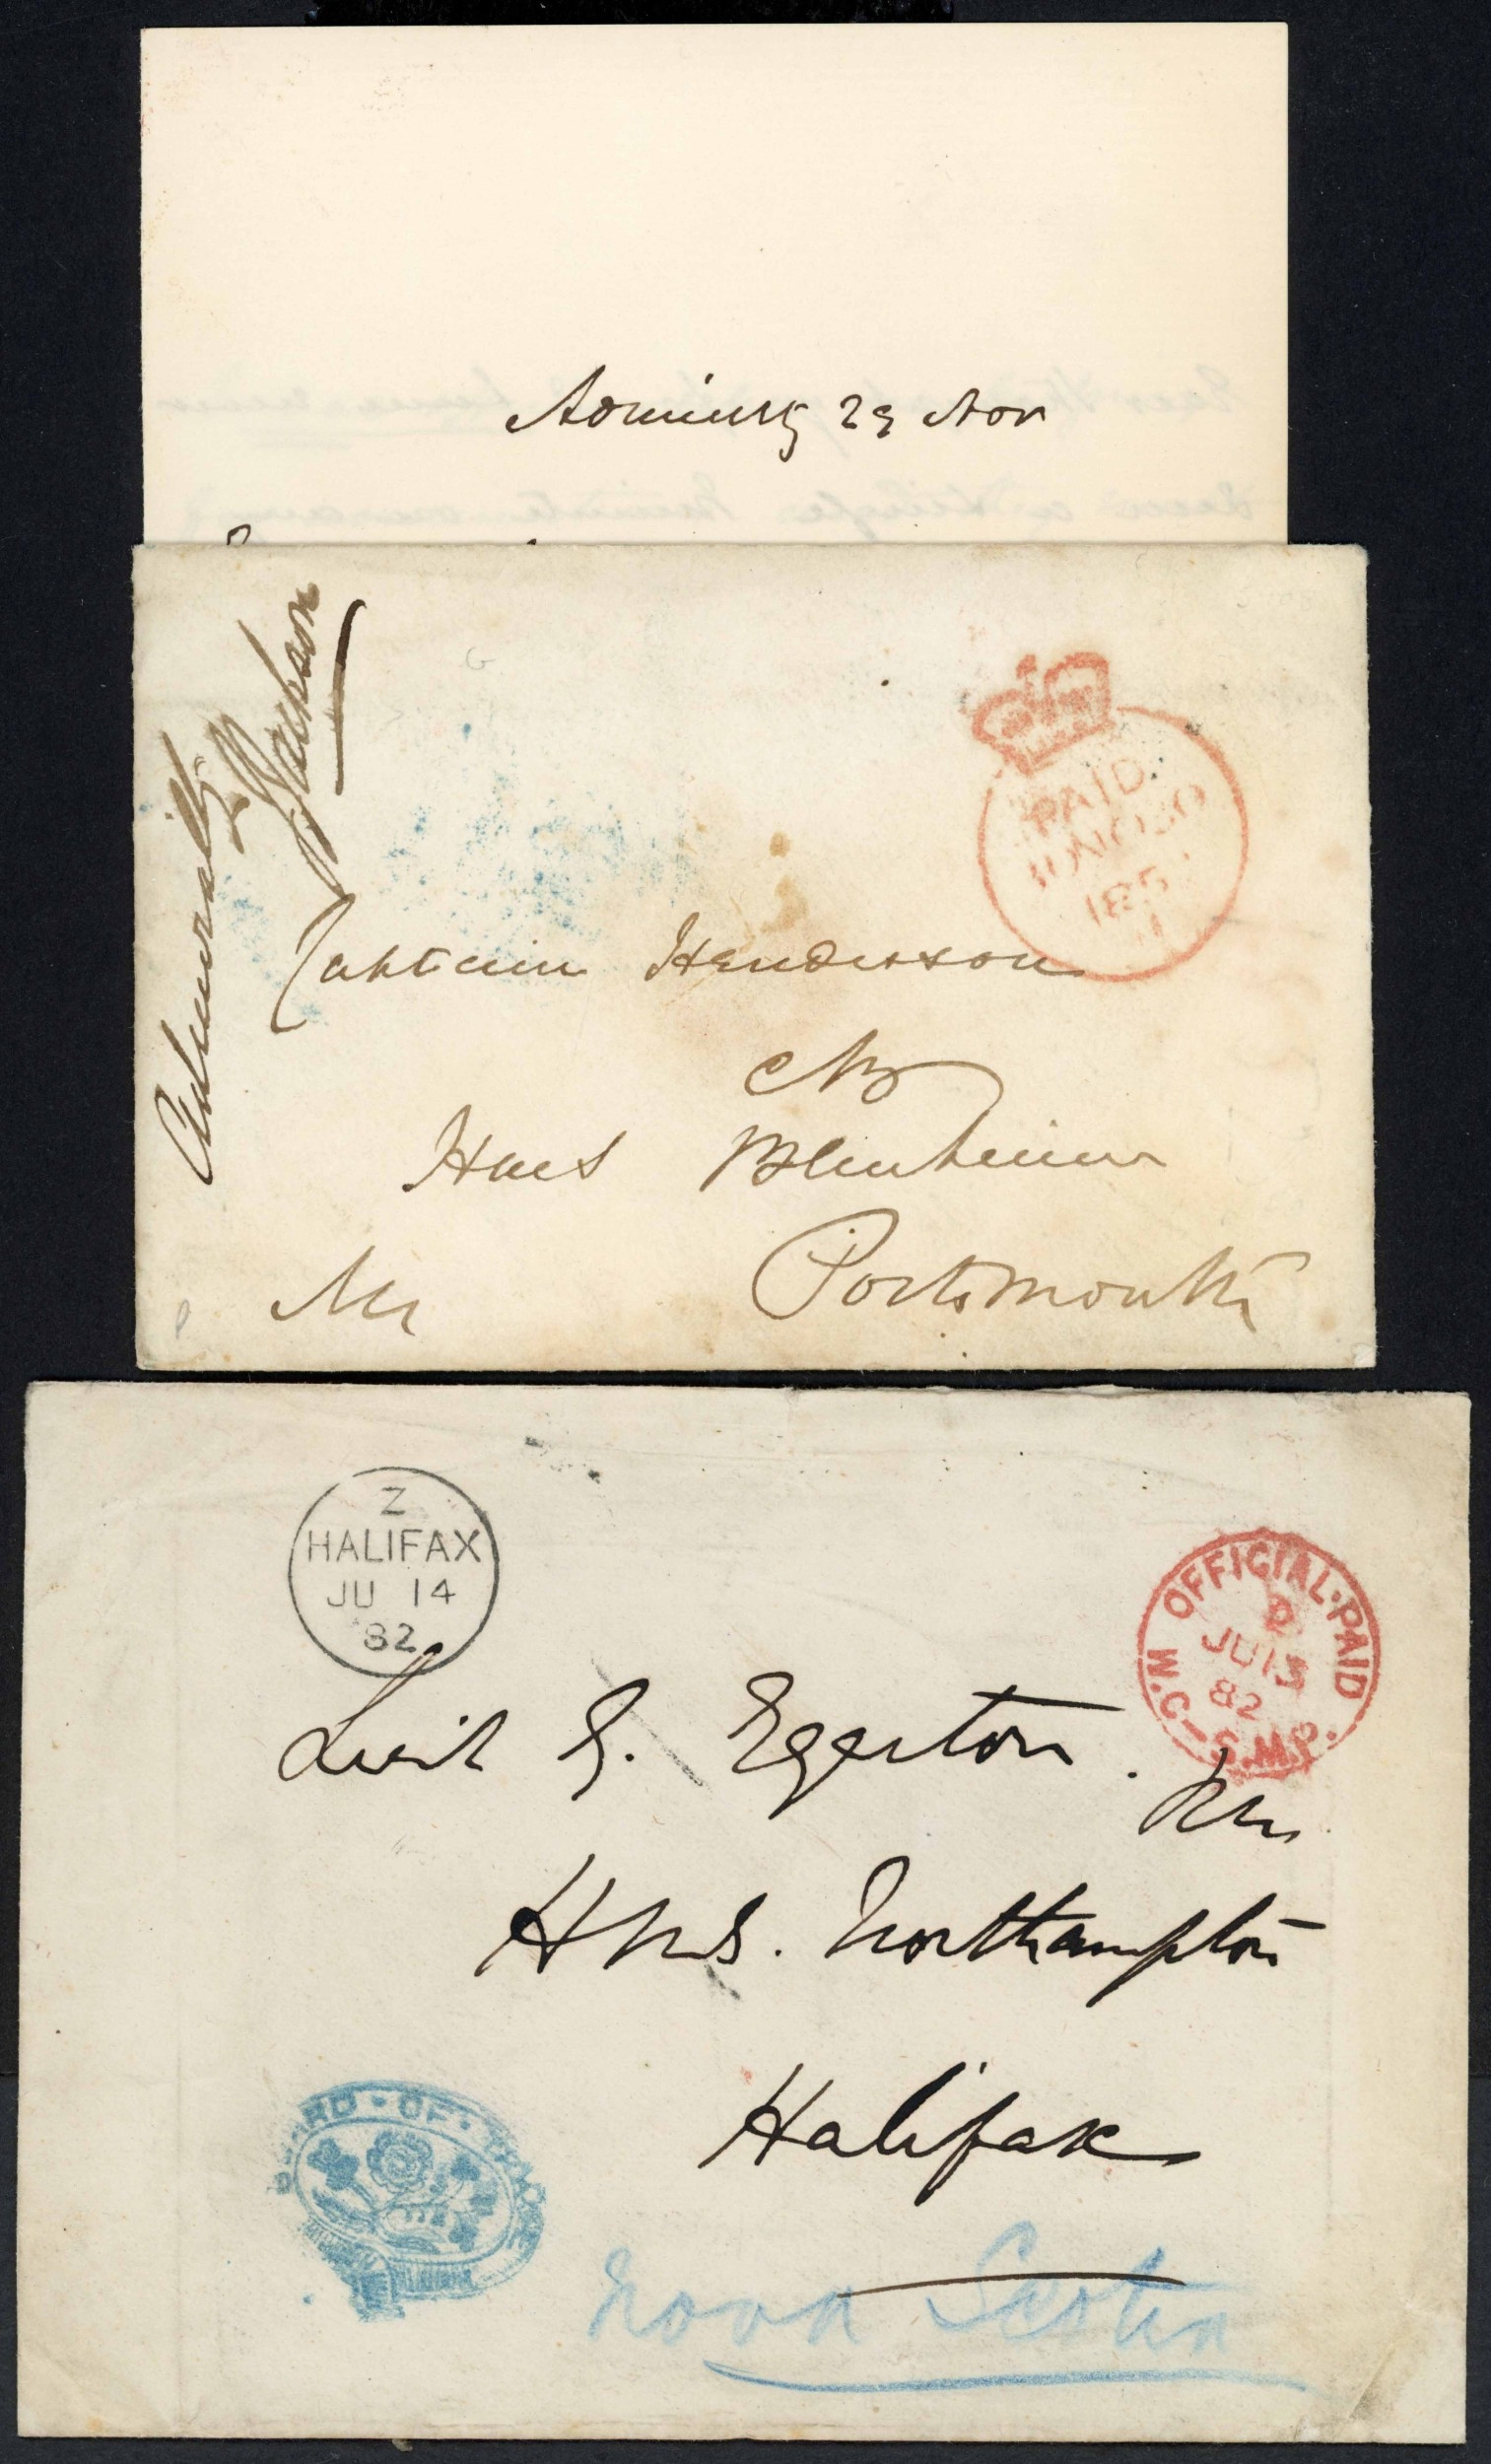 Admiralty 29 Nov
Admiralty
PAID
Captain Henderson
CB
HMS Blenheim
Portsmouth
Z
HALIFAX
JU 14
82
OFFICIAL·PAID
JU 13
82
Lieut G. Egerton. RN
HMS. Northampton
Halifax
BOARD·OF·TRADE
Nova Scotia